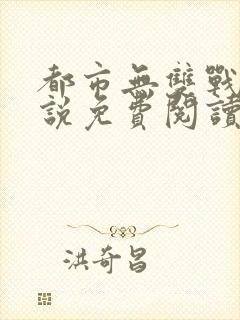 都市無雙戰
說免費閱讀
洪奇昌